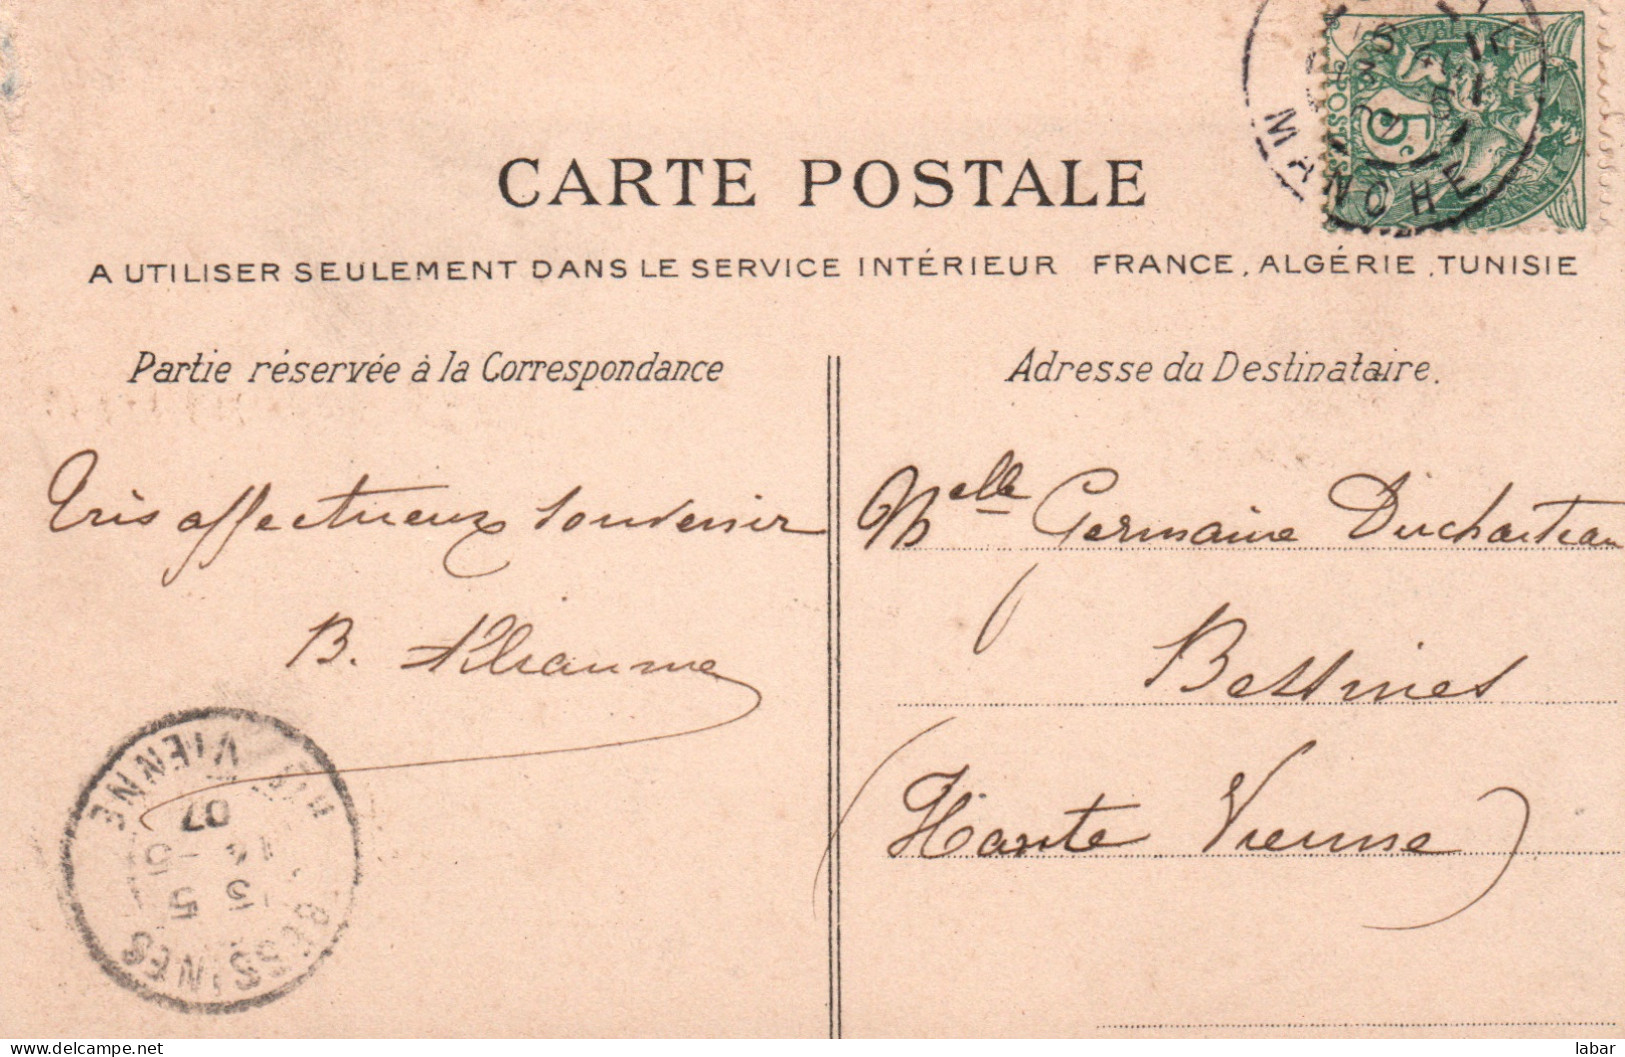 CARTE POSTALE
A UTILISER SEULEMENT DANS LE SERVICE INTÉRIEUR FRANCE, ALGÉRIE, TUNISIE
Partie réservée à la Correspondance
Très affectueux souvenir
B.
Adresse du Destinataire.
Melle Germaine Duchasteau
Bessines
(Haute Vienne)
MANCHE
5c
BESSINES
HTE VIENNE
07
delcampe.net
labar